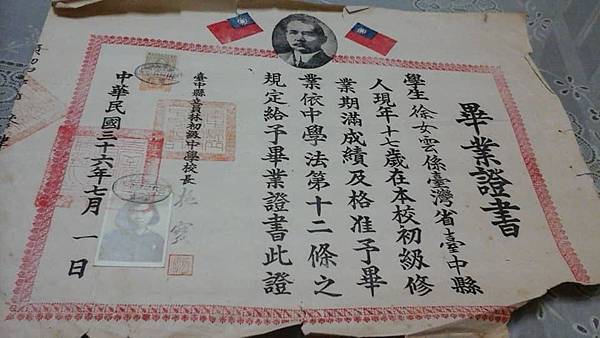 畢業證書
學生徐女雲係臺灣省臺中縣
人現年十七歲在本校初級修
業期滿成績及格准予畢
業依中學法第十二條之
規定給予畢業證書此證
臺中縣立員林初級中學校長
中華民國三十六年七月一日